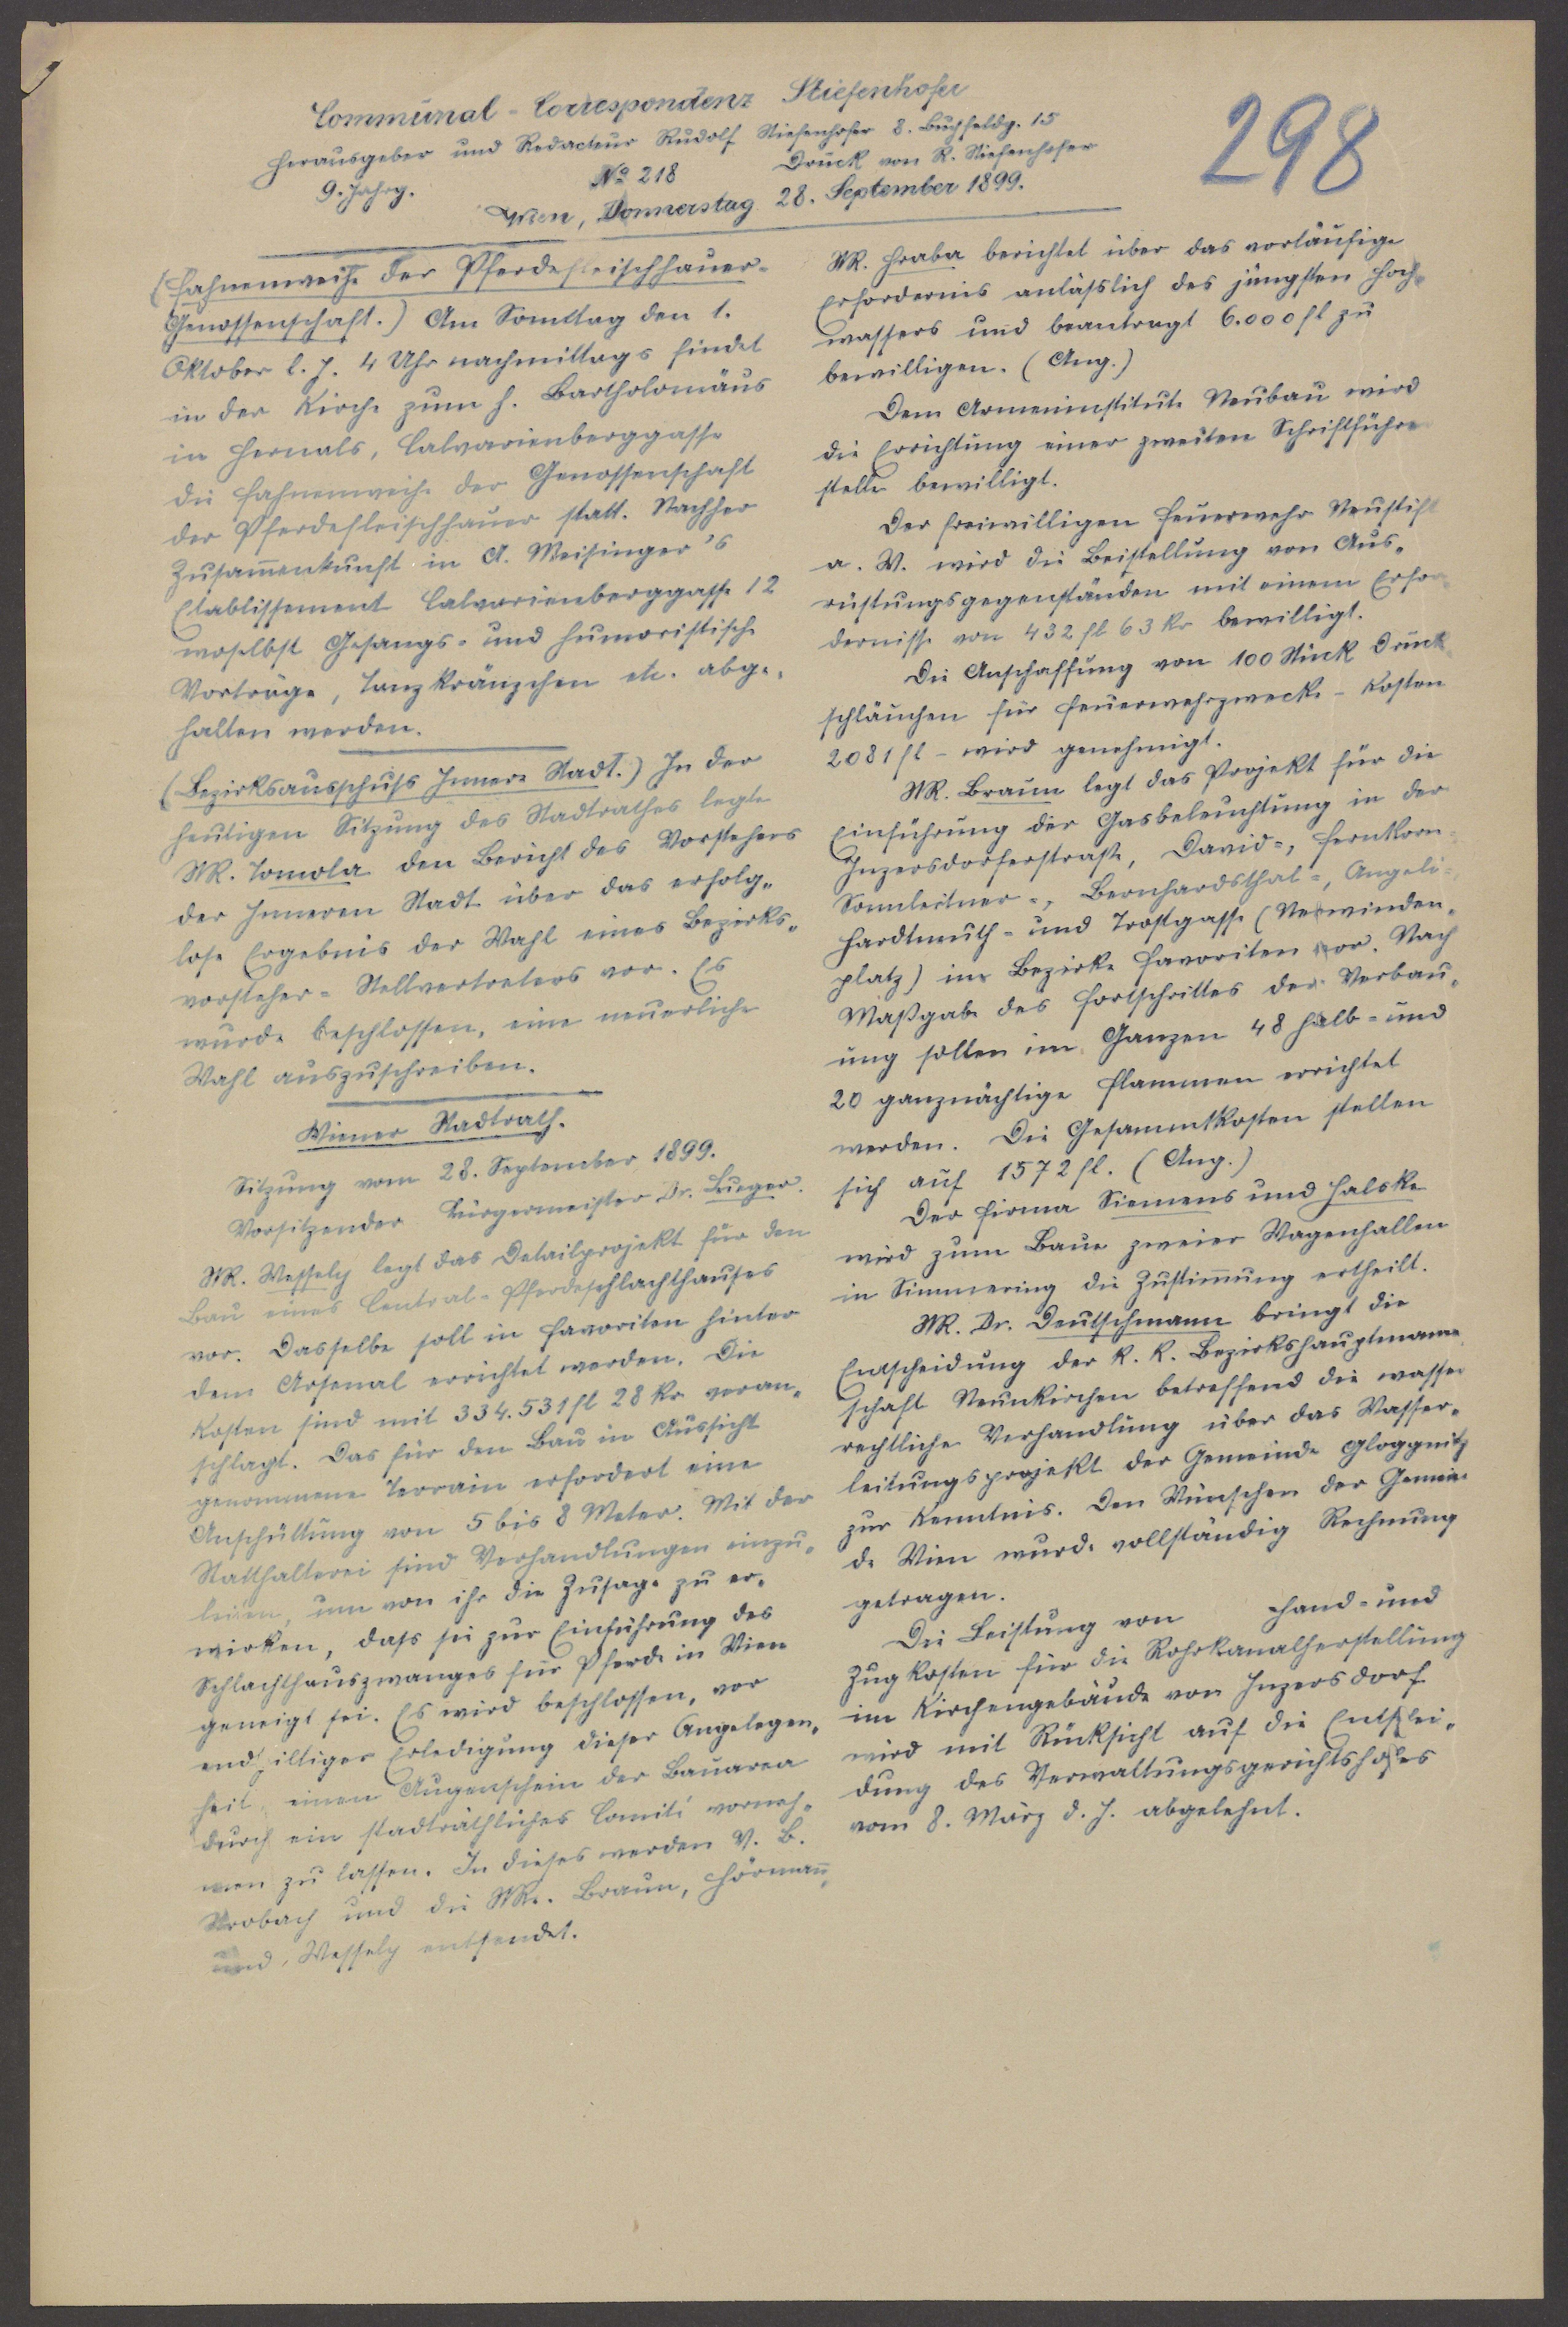 Communal-Correspondenz Stiefenhofer
298
Herausgeber und Redacteur Rudolf Stiefenhofer 8. Buchfeldg. 15
9. Jahrg. No 218 Druck von R. Stiefenhofer
Wien, Donnerstag 28. September 1899.
(Fahnenweihe der Pferdefleischhauer-
Genossenschaft.) Am Sonntag den 1.
Oktober l. J. 4 Uhr nachmittags findet
in der Kirche zum h. Bartholomäus
in Hernals, Calvarienberggasse
die Fahnenweihe der Genossenschaft
der Pferdefleischhauer statt. Nachher
Zusammenkunft in A. Meisinger's
Etablissement Calvarienberggasse 12
woselbst Gesangs- und humoristische
Vorträge, Tanzkränzchen etc. abge-
halten werden.
(Bezirksausschuss Innere Stadt.) In der
heutigen Sitzung des Stadtrathes legte
StR. Tomola den Bericht des Vorstehers
der Inneren Stadt über das erfolg-
lose Ergebnis der Wahl eines Bezirks-
vorsteher-Stellvertreters vor. Es
wurde beschlossen, eine neuerliche
Wahl auszuschreiben.
Wiener Stadtrath.
Sitzung vom 28. September 1899.
Vorsitzender Bürgermeister Dr. Lueger.
StR. Wessely legt das Detailprojekt für den
Bau eines Central-Pferdeschlachthauses
vor. Dasselbe soll in Favoriten hinter
dem Arsenal errichtet werden. Die
Kosten sind mit 334.531 fl 28 kr veran-
schlagt. Das für den Bau in Aussicht
genommene Terrain erfordert eine
Anschüttung von 5 bis 8 Meter. Mit der
Statthalterei sind Verhandlungen einzu-
leiten, um von ihr die Zusage zu er-
wirken, dass sie zur Einführung des
Schlachthauszwanges für Pferde in Wien
geneigt sei. Es wird beschlossen, vor
endgiltiger Erledigung dieser Angelegen-
heit einen Augenschein der Bauarea
durch ein stadträthliches Comité vorneh-
men zu lassen. In dieses werden V. B.
Strobach und die StRe. Braun, Hörmann
und Wessely entsendet.
StR. Hraba berichtet über das vorläufige
Erfordernis anlässlich des jüngsten Hoch-
wassers und beantragt 6.000 fl zu
bewilligen. (Ang.)
Dem Armeninstitute Neubau wird
die Errichtung einer zweiten Schriftführer
stelle bewilligt.
Der freiwilligen Feuerwehr Neustift
a. W. wird die Beistellung von Aus-
rüstungsgegenständen mit einem Erfor-
dernisse von 432 fl 63 kr bewilligt.
Die Anschaffung von 100 Stück Druck-
schläuchen für Feuerwehrzwecke - Kosten
2081 fl - wird genehmigt.
StR. Braun legt das Projekt für die
Einführung der Gasbeleuchtung in der
Inzersdorferstraße, David-, Fernkorn-
Sonnleitner-, Bernhardsthal-, Angeli-,
Hardtmuth- und Trostgasse (Neuwinden-
platz) im Bezirke Favoriten vor. Nach
Maßgabe des Fortschrittes der Verbau-
ung sollen im Ganzen 48 halb- und
20 ganznächtige Flammen errichtet
werden. Die Gesammtkosten stellen
sich auf 1572 fl. (Ang.)
Der Firma Siemens und Halske
wird zum Baue zweier Wagenhallen
in Simmering die Zustimmung ertheilt.
StR. Dr. Deutschmann bringt die
Entscheidung der k. k. Bezirkshauptmann-
schaft Neunkirchen betreffend die wasser
rechtliche Verhandlung über das Wasser-
leitungsprojekt der Gemeinde Gloggnitz
zur Kenntnis. Den Wünschen der Gemein-
de Wien wurde vollständig Rechnung
getragen.
Die Leistung von Hand- und
Zugkosten für die Rohrkanalherstellung
im Kirchengebäude von Inzersdorf
wird mit Rücksicht auf die Entschei-
dung des Verwaltungsgerichtshofes
vom 8. März d. J. abgelehnt.